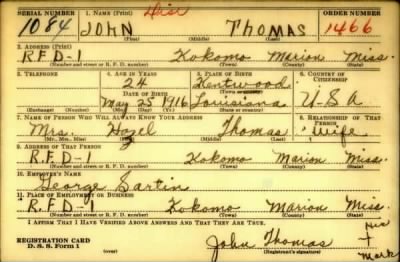 SERIAL NUMBER 1. NAME (Print) ORDER NUMBER
1084 JOHN THOMAS 1466
(First) (Middle) (Last)
2. ADDRESS (Print)
R.F.D-1 Kokomo Marion Miss.
(Number and street or R. F. D. number) (Town) (County) (State)
3. TELEPHONE 4. AGE IN YEARS 5. PLACE OF BIRTH 6. COUNTRY OF CITIZENSHIP
24 Kentwood
DATE OF BIRTH (Town or county)
May 25 1916 Louisiana U-S A
(Exchange) (Number) (Mo.) (Day) (Yr.) (State or country)
7. NAME OF PERSON WHO WILL ALWAYS KNOW YOUR ADDRESS 8. RELATIONSHIP OF THAT PERSON
Mrs. Hazel Thomas Wife
(Mr., Mrs., Miss) (First) (Middle) (Last)
9. ADDRESS OF THAT PERSON
R.F.D-1 Kokomo Marion Miss.
(Number and street or R. F. D. number) (Town) (County) (State)
10. EMPLOYER'S NAME
George Sartin
11. PLACE OF EMPLOYMENT OR BUSINESS
R.F.D-1 Kokomo Marion Miss.
(Number and street or R. F. D. number) (Town) (County) (State)
I AFFIRM THAT I HAVE VERIFIED ABOVE ANSWERS AND THAT THEY ARE TRUE.
His
REGISTRATION CARD John Thomas X
D. S. S. Form 1 (Registrant's signature) Mark